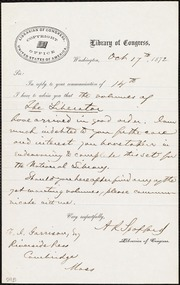 LIBRARIAN OF CONGRESS
COPYRIGHT
OFFICE
UNITED STATES OF AMERICA
Library of Congress,
Washington, Oct. 17th, 1872
Sir:
In reply to your communication of 14th
I have to advise you that the volumes of
The Liberator
have arrived in good order. I am
much indebted to you for the care
and interest you have taken in
endeavoring to complete this set for
the National Library.
Should you hereafter find any of the
yet wanting volumes, please commu-
nicate with me.
Very respectfully,
A. R. Spofford
Librarian of Congress.
Garrison, Esq
Riverside Press
Cambridge
Mass